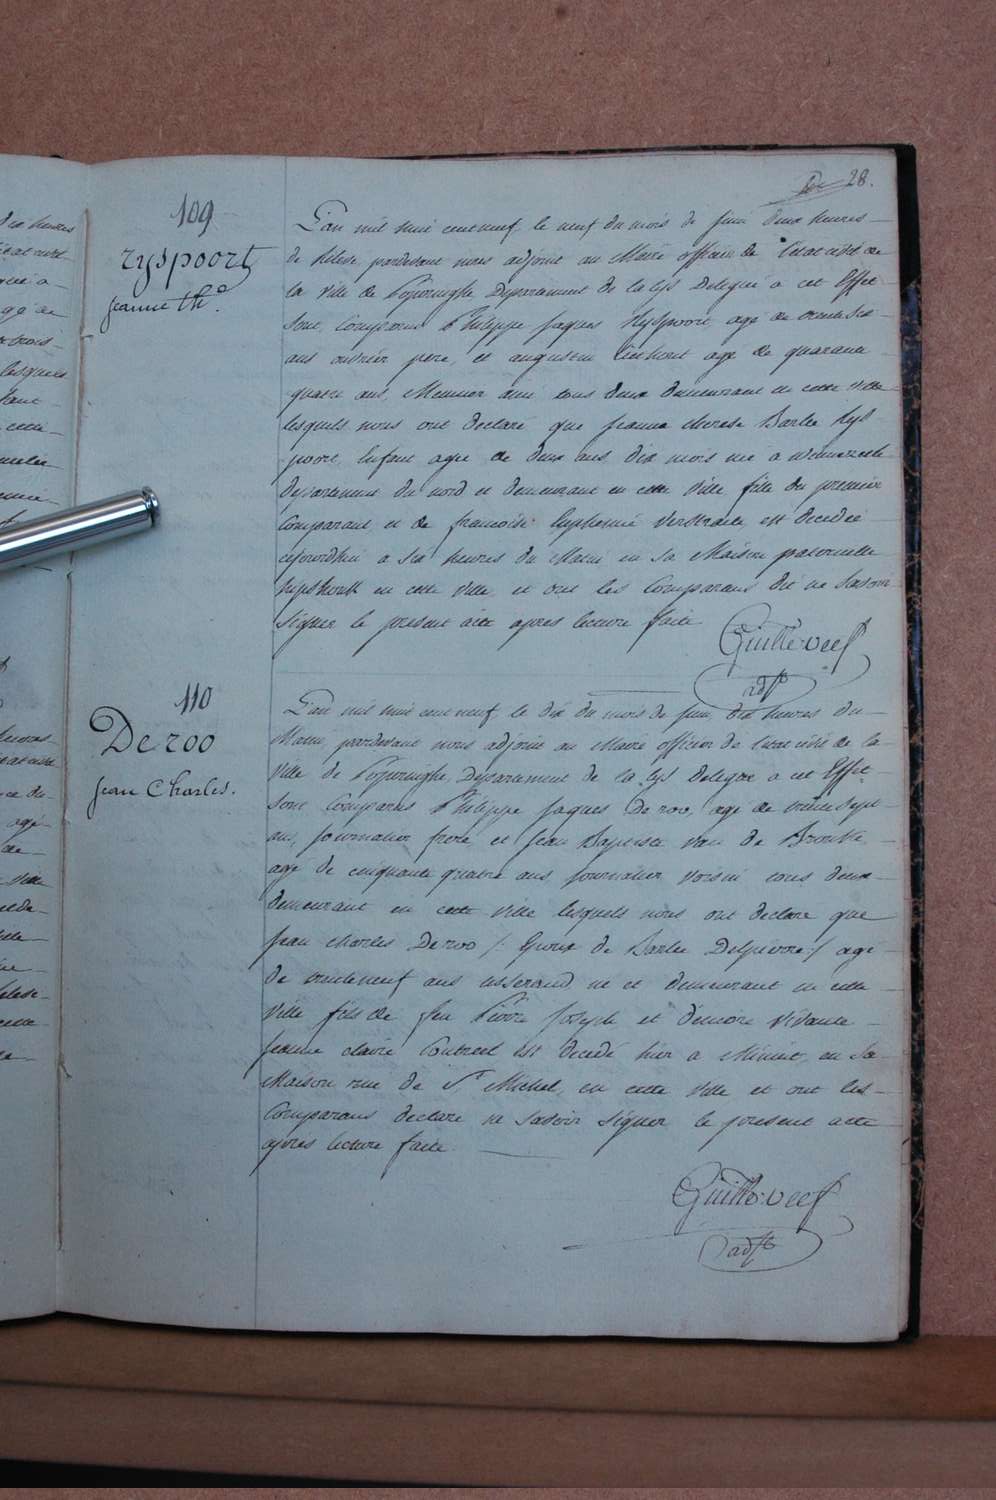 28.
109
Ryspoort
Jeanne Th.e
L'an mil huit cent neuf, le neuf du mois de Juin deux heures
de relevé, pardevant nous adjoint au Maire officier de l'Etat civil de
la ville de Poperinghe Departement de la Lys Delegué a cet Effet
sont Comparus Philippe Jaques Ryspoort, agé de trente six
ans ouvrier pere, et augustin agé de quarante
quatre ans, Meunier ami tous deux demeurant en cette ville
lesquels nous ont declaré que Jeanne therese Barbe Rys-
poort, Enfant agée de deux ans dix mois née a winnezeele
departement du nord et demeurant en cette Ville fille du premier
Comparant et de francoise Euphemie Verstraete est decedée
cejourdhui a six heures du Matin en sa Maison paternelle
en cette Ville, et ont les Comparans dit ne savoir
signer le present acte apres lecture faite
Guille: Veef
adj.t
110
De roo
Jean Charles.
L'an mil huit cent neuf, le dix du mois de Juin, dix heures du
Matin, pardevant nous adjoint au Maire officier de l'etat civil de la
Ville de Poperinghe, Departement de la Lys delegue a cet Effet
sont Comparus Philippe Jaques De roo, agé de trente sept
ans, Journalier frere, et Jean Baptiste Van de Broucke
agé de cinquante quatre ans Journalier Voisin tous deux
demeurant en cette ville lesquels nous ont declare que
Jean charles De roo /: Epoux de Barbe Delpierre :/ agé
de trenteneuf ans tisserand né et demeurant en cette
Ville fils de feu Pierre Joseph et d'encore Vivante
Jeanne claire Coutreel est decedé hier a Minuit, en sa
Maison rue de St Michel, en cette Ville et ont les
Comparans declare ne savoir signer le present acte
apres lecture faite.
Guille: Veef
adj.t